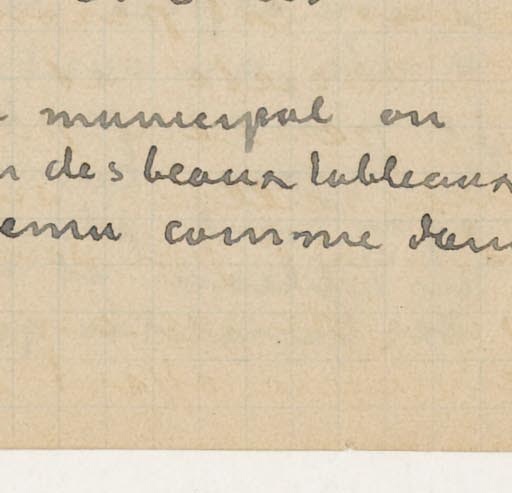 municipal on
des beaux tableaux
comme dans